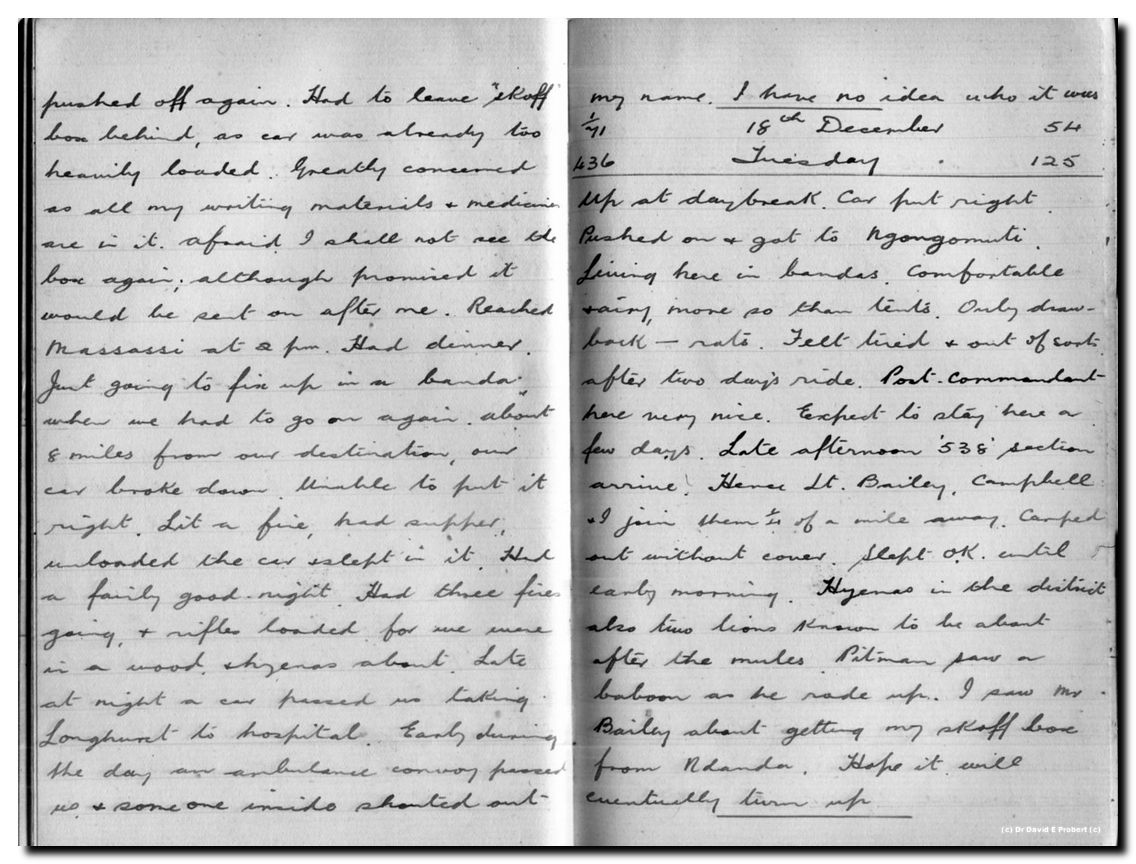 pushed off again. Had to leave "skoff"
box behind, as car was already too
heavily loaded. Greatly concerned
as all my writing materials & medicines
are in it. Afraid I shall not see the
box again; although promised it
would be sent on after me. Reached
Massassi at 2 pm. Had dinner.
Just going to fix up in a "banda"
when we had to go on again. About
8 miles from our destination, our
car broke down. Unable to put it
right. Lit a fire, had supper,
unloaded the car & slept in it. Had
a fairly good night. Had three fires
going, & rifles loaded for we were
in a wood & hyenas about. Late
at night a car passed us taking
Longhurst to hospital. Early during
the day an ambulance convoy passed
us & someone inside shouted out
my name. I have no idea who it was
18th December 54
436 Tuesday . 125
Up at daybreak. Car put right.
Pushed on & got to Ngongomuti.
Living here in bandas. Comfortable
& airy, more so than tents. Only draw-
back — rats. Felt tired & out of sorts
after two days ride. Post-Commandant
here very nice. Expect to stay here a
few days. Late afternoon '538' section
arrive! Hence Lt. Bailey, Campbell
& I join them ¼ of a mile away. Camped
out without cover. Slept O.K. until
early morning. Hyenas in the district
also two lions known to be about
after the mules. Pitman saw a
baboon as he rode up. I saw Mr
Bailey about getting my skoff box
from Ndanda. Hope it will
eventually turn up
(c) Dr David E Probert (c)